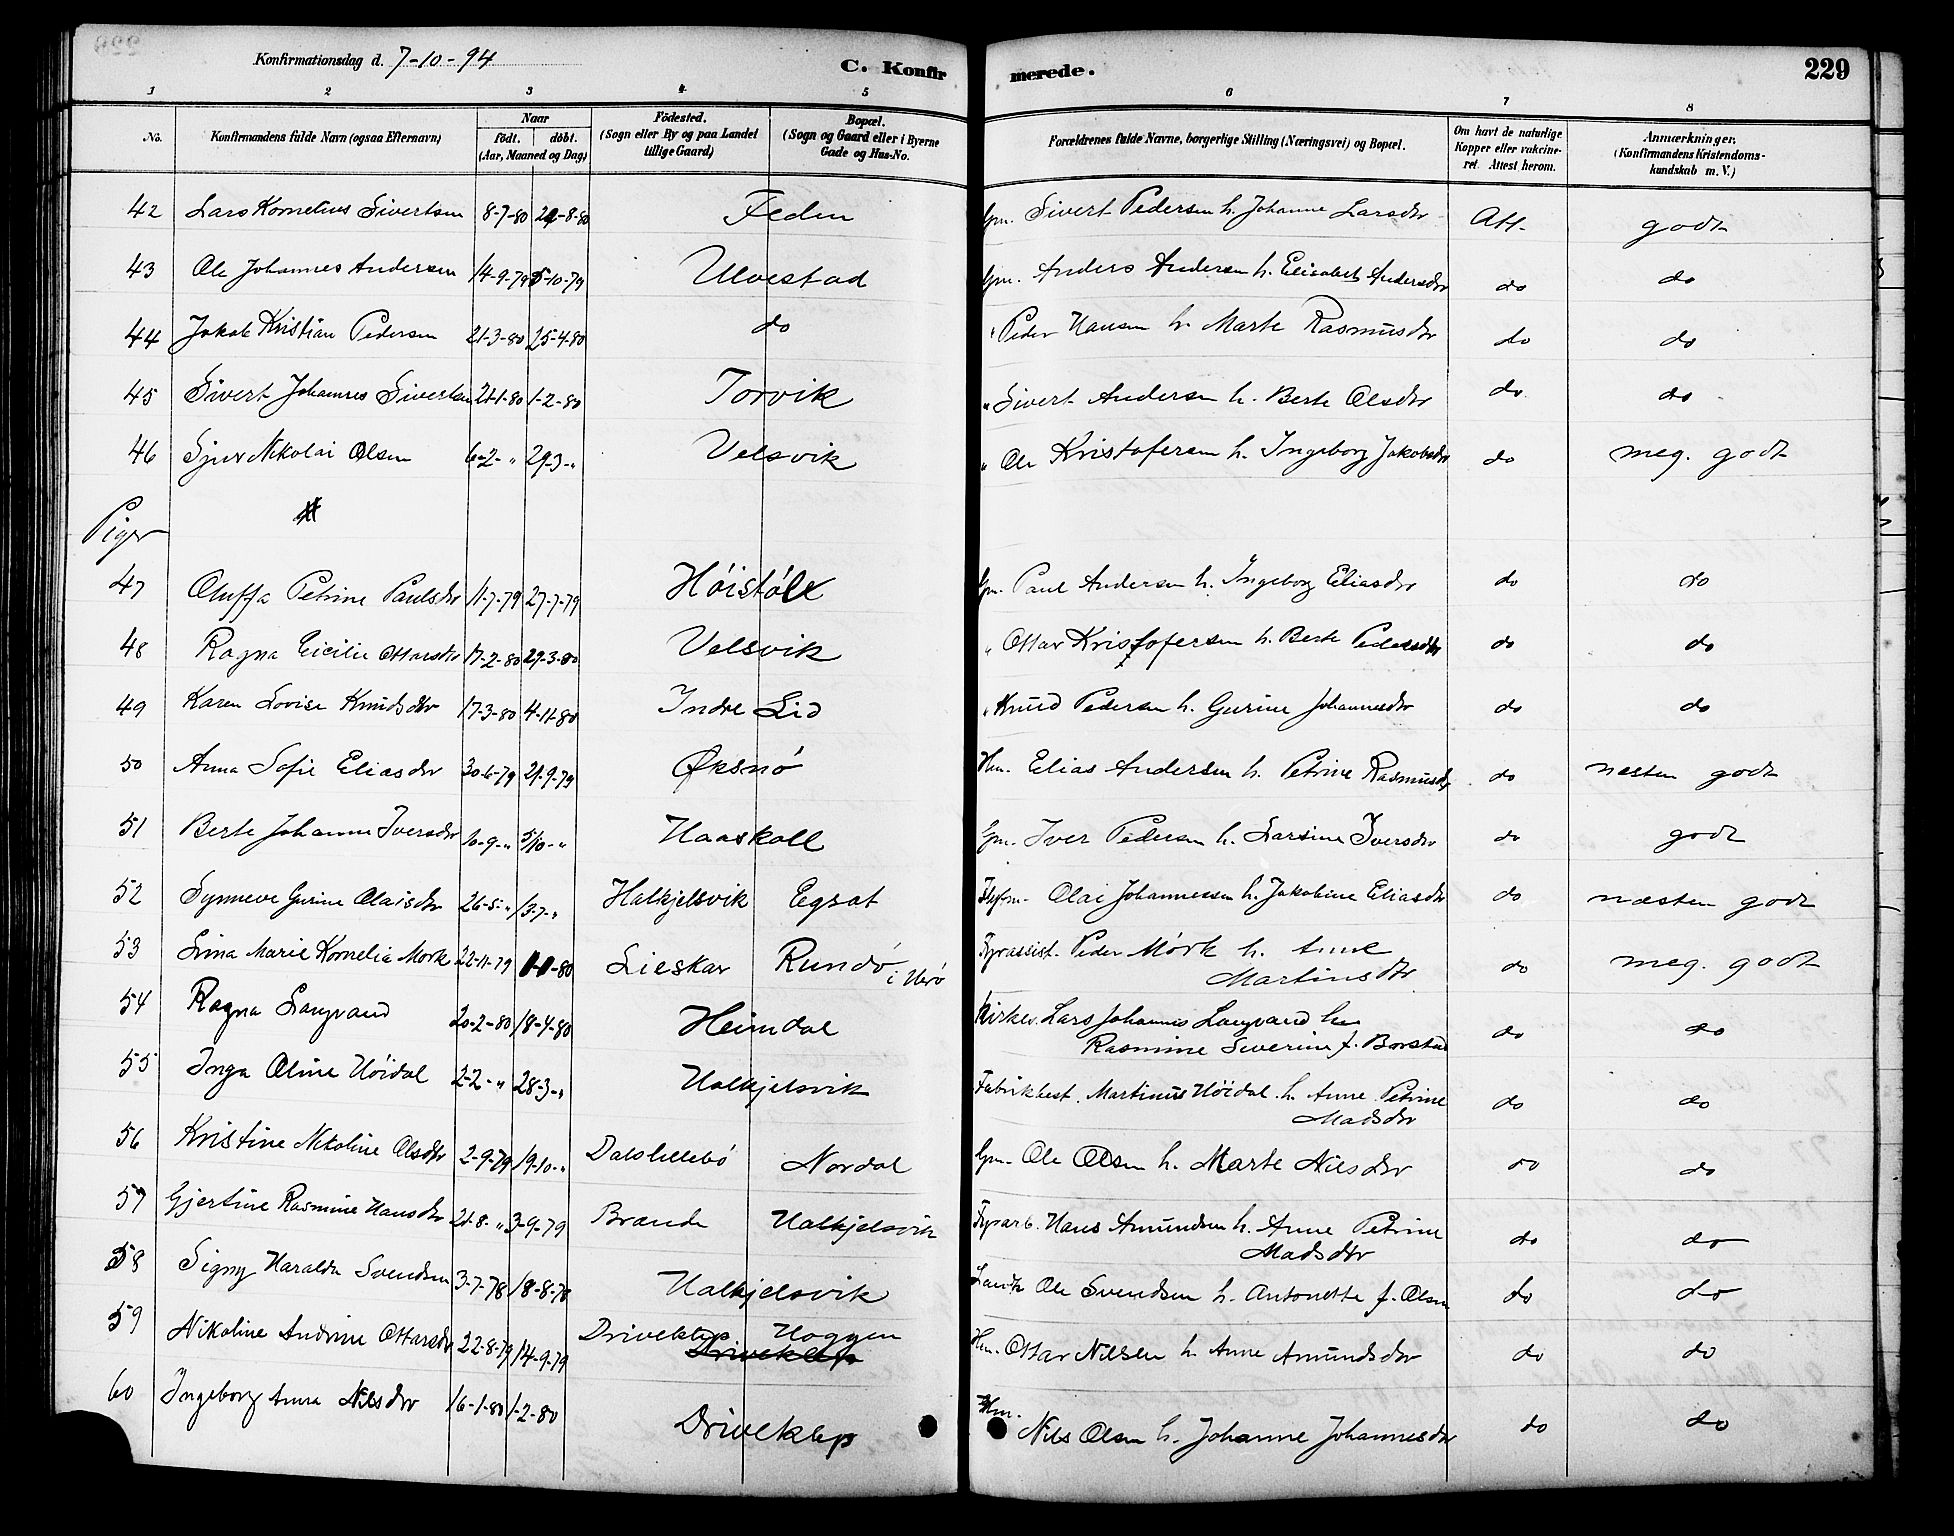 Konfirmationsdag d. 7-10-94 C. Konfirmerede. 229
1 2 3 4 5 6 7 8
No. Konfirmandens fulde Navn (ogsaa Efternavn) Naar født. døbt. (Aar, Maaned og Dag) Fødested. (Sogn eller By og paa Landet tillige Gaard) Bopæl. (Sogn og Gaard eller i Byerne Gade og Hus-No. Forældrenes fulde Navne, borgerlige Stilling (Næringsvei) og Bopæl. Om havt de naturlige Kopper eller vakcineret. Attest herom. Anmærkninger. (Konfirmandens Kristendomskundskab m. V.)
42 Lars Kornelius Sivertsen 8-7-80 22-8-80 Feden Gm. Sivert Pedersen h. Johanne Larsdtr Att. godt
43 Ole Johannes Andersen 14-9-79 5-10-79 Ulvestad Gm. Anders Andersen h. Elisabet Andersdtr do do
44 Jakob Kristian Pedersen 21-3-80 25-4-80 do " Peder Hansen h. Marte Rasmusdtr do do
45 Sivert Johannes Sivertsen 21-1-80 1-2-80 Torvik " Sivert Andersen h. Berte Olsdtr do do
46 Sjur Nikolai Olsen 6-2-" 29-3-" Velsvik " Ole Kristofersen h. Ingeborg Jakobsdtr do meg. godt
Piger
47 Oluffa Petrine Paulsdtr 11-7-79 27-7-79 Høistøle Gm. Paul Andersen h. Ingeborg Eliasdtr do do
48 Ragna Cicilie Ottarsdtr 17-2-80 29-3-80 Velsvik " Ottar Kristofersen h. Berte Pedersdtr do do
49 Karen Lovise Knudsdtr 17-3-80 4-11-80 Indre Lid " Knud Pedersen h. Gurine Johannesdtr do do
50 Anna Sofie Eliasdtr 30-6-79 21-9-79 Øksnø Hm. Elias Andersen h. Petrine Rasmusdtr do næsten godt
51 Berte Johanne Iversdtr 10-9-" 5/10-" Haaskoll Gm. Iver Pedersen h. Larsine Iversdtr do godt
52 Synneve Gurine Olaisdtr 26-5-" 13-7-" Halkjelsvik Egsæt Olai Johannessen h. Jakobine Eliasdtr do næsten godt
53 Lina Marie Kornelia Mork 22-11-79 1-1-80 Lieskar Rundø i Herø Fyrassist. Peder Mørk h. Anne
Martinsdtr do meg. godt
54 Ragna Langvand 20-2-80 18-4-80 Heimdal Kirkes. Lars Johannes Langvand h.
Rasmine Severine f. Borstad do do
55 Inga Oline Høidal 2-2-" 28-3-" Halkjelsvik Fabrikbest. Martinus Høidal h. Anne Petrine
Madsdtr do do
56 Kristine Nikoline Olsdtr 2-9-79 19-10-" Dalslillebø Nordal Gm. Ole Olsen h. Marte Nilsdtr do do
57 Gjertine Rasmine Hansdtr 21-8-" 3-9-79 Brande Halkjelsvik Hans Amundsen h. Anne Petrine
Madsdtr do do
58 Signy Haralda Svendsen 3-7-78 18-8-78 Halkjelsvik Ole Svendsen h. Antonette f. Olsen do do
59 Nikoline Andrine Ottarsdtr 22-8-79 14-9-79 Driveklep Hoggen Hm. Ottar Nilsen h. Anne Amundsdtr do do
Driveklep
60 Ingeborg Anna Nilsdtr 16-1-80 1-2-80 Driveklep Hm. Nils Olsen h. Johanne Johannesdtr do do